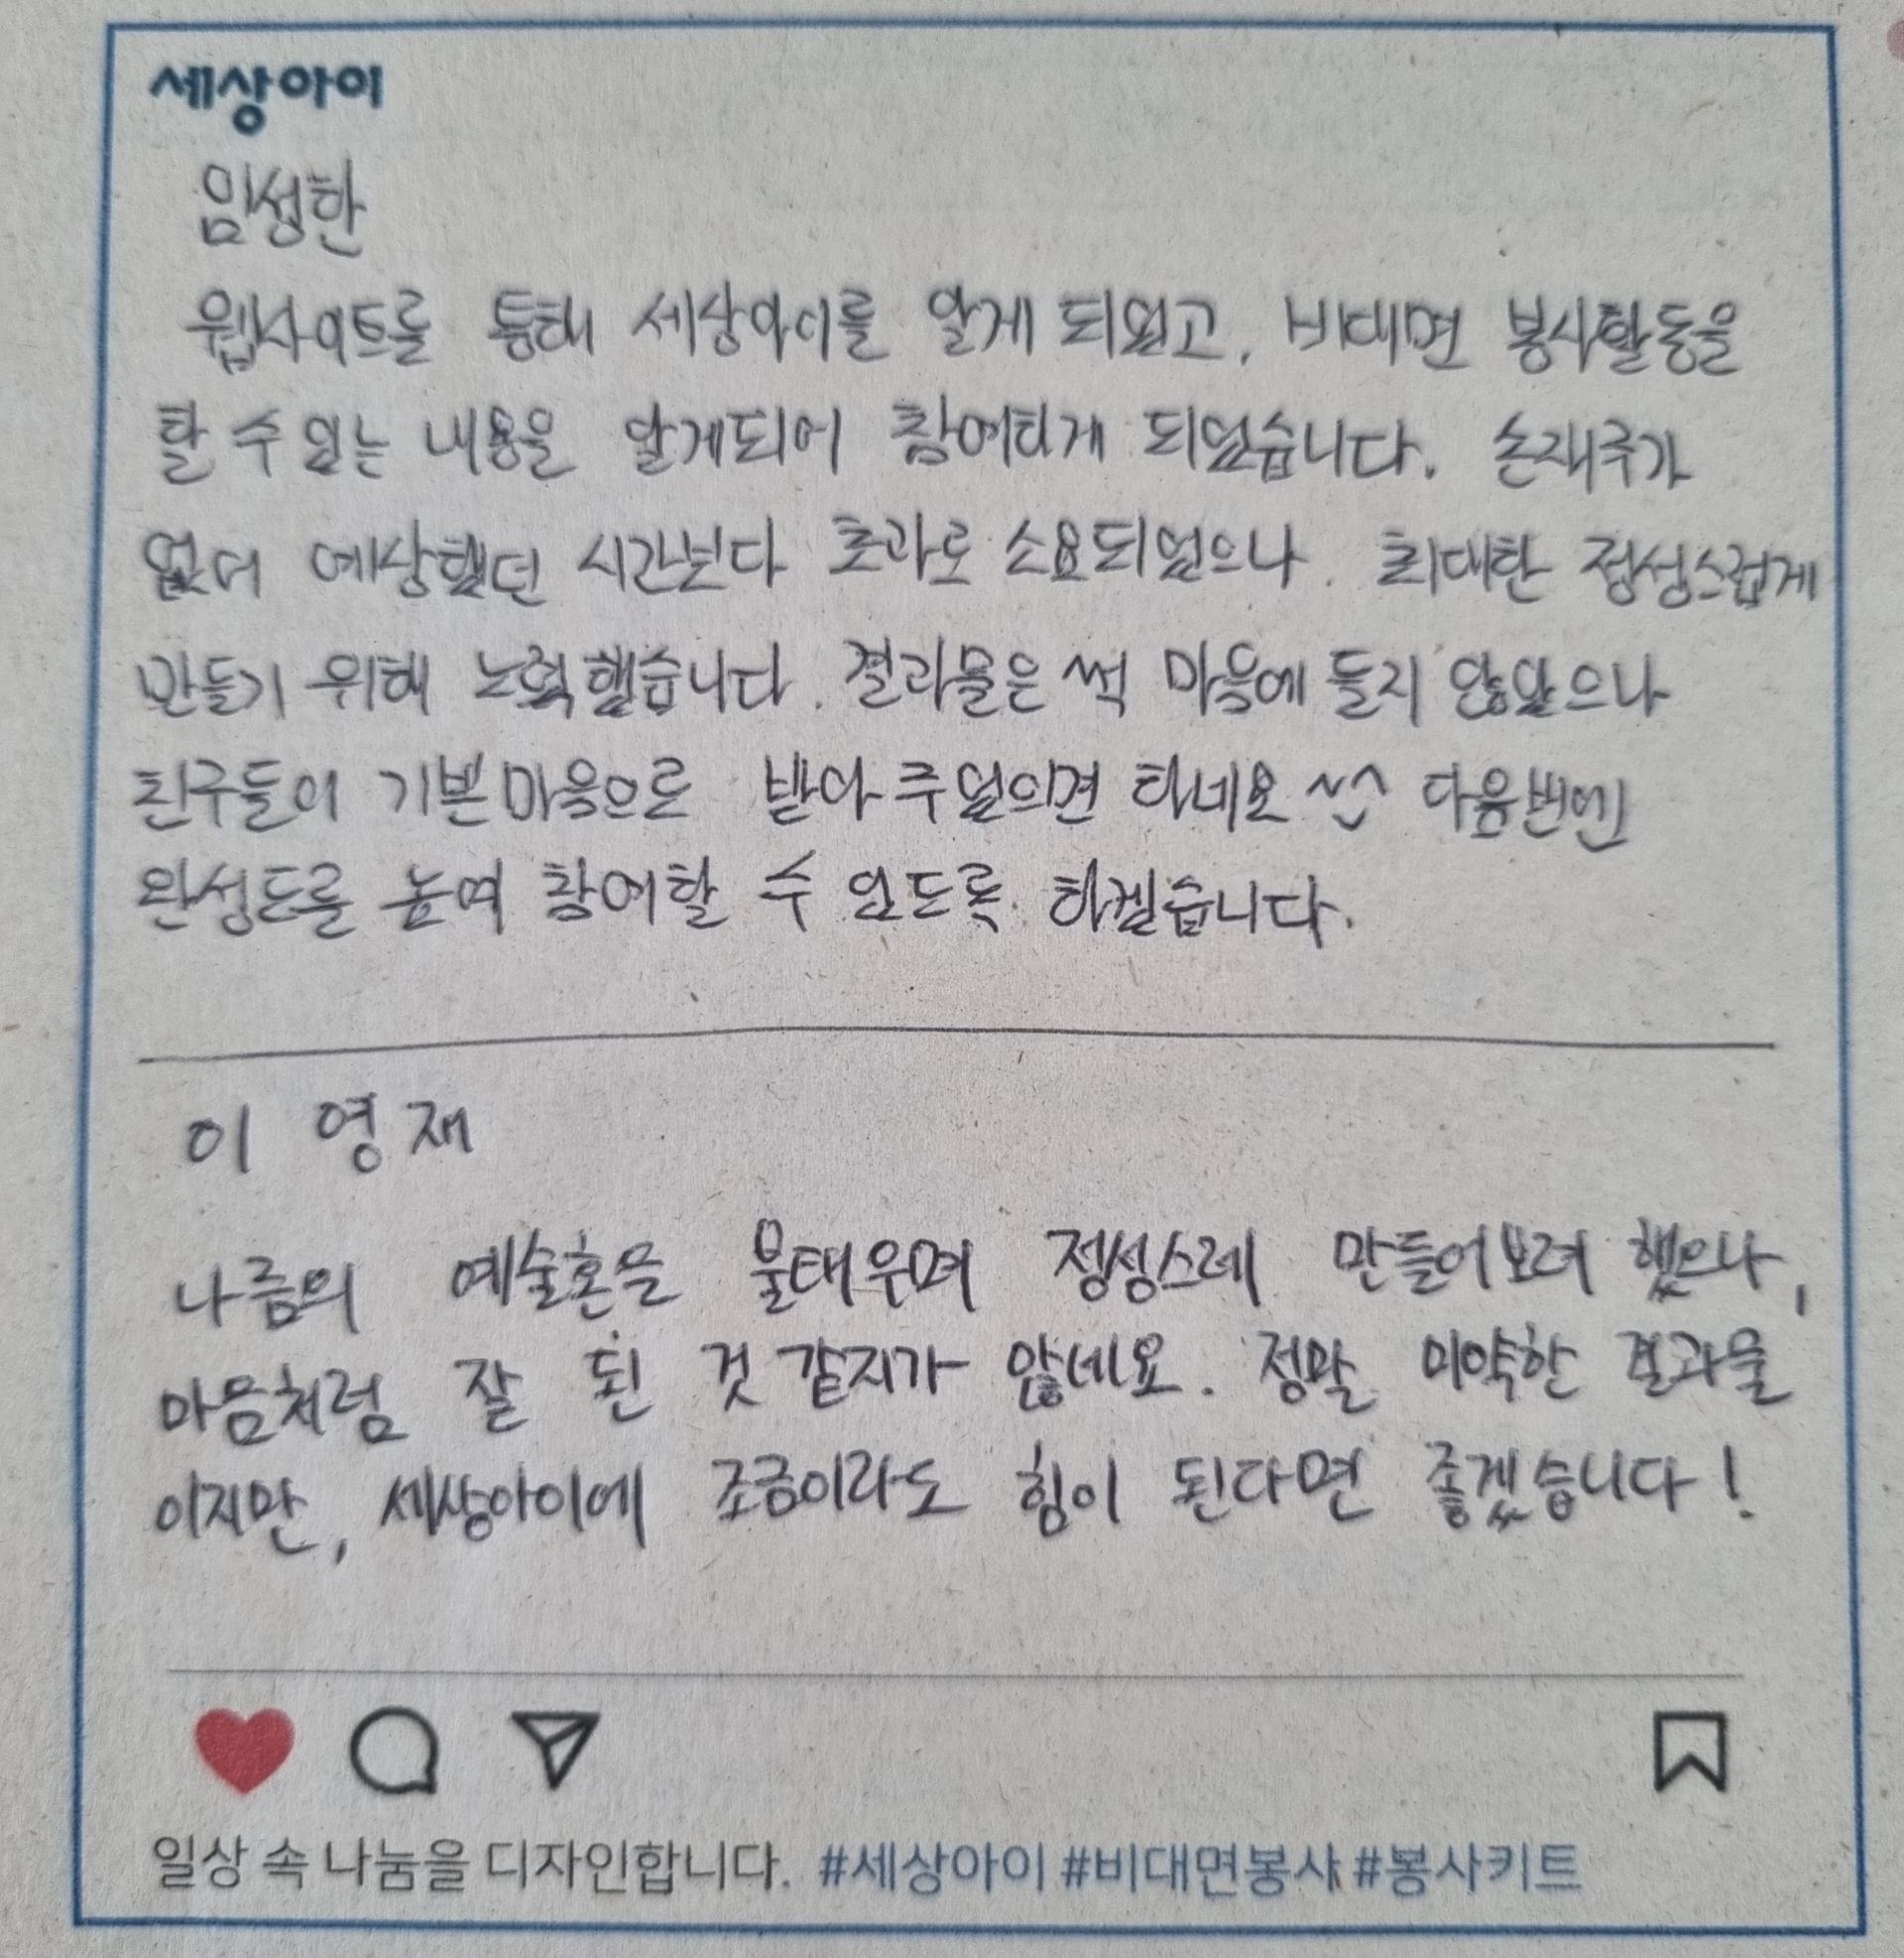 세상아이
임성한
웹사이트를 통해 세상아이를 알게 되었고, 비대면 봉사활동을
할 수 있는 내용을 알게되어 참여하게 되었습니다. 손재주가
없어 예상했던 시간보다 초과로 소요되었으나, 최대한 정성스럽게
만들기 위해 노력했습니다. 결과물은 썩 마음에 들지 않았으나
친구들이 기쁜마음으로 받아주었으면 하네요 ^^ 다음번엔
완성도를 높여 참여할 수 있도록 하겠습니다.
이 영재
나름의 예술혼을 불태우며 정성스레 만들어보려 했으나,
마음처럼 잘 된 것 같지가 않네요. 정말 미약한 결과물
이지만, 세상아이에 조금이라도 힘이 된다면 좋겠습니다!
일상 속 나눔을 디자인합니다. #세상아이 #비대면봉사 #봉사키트